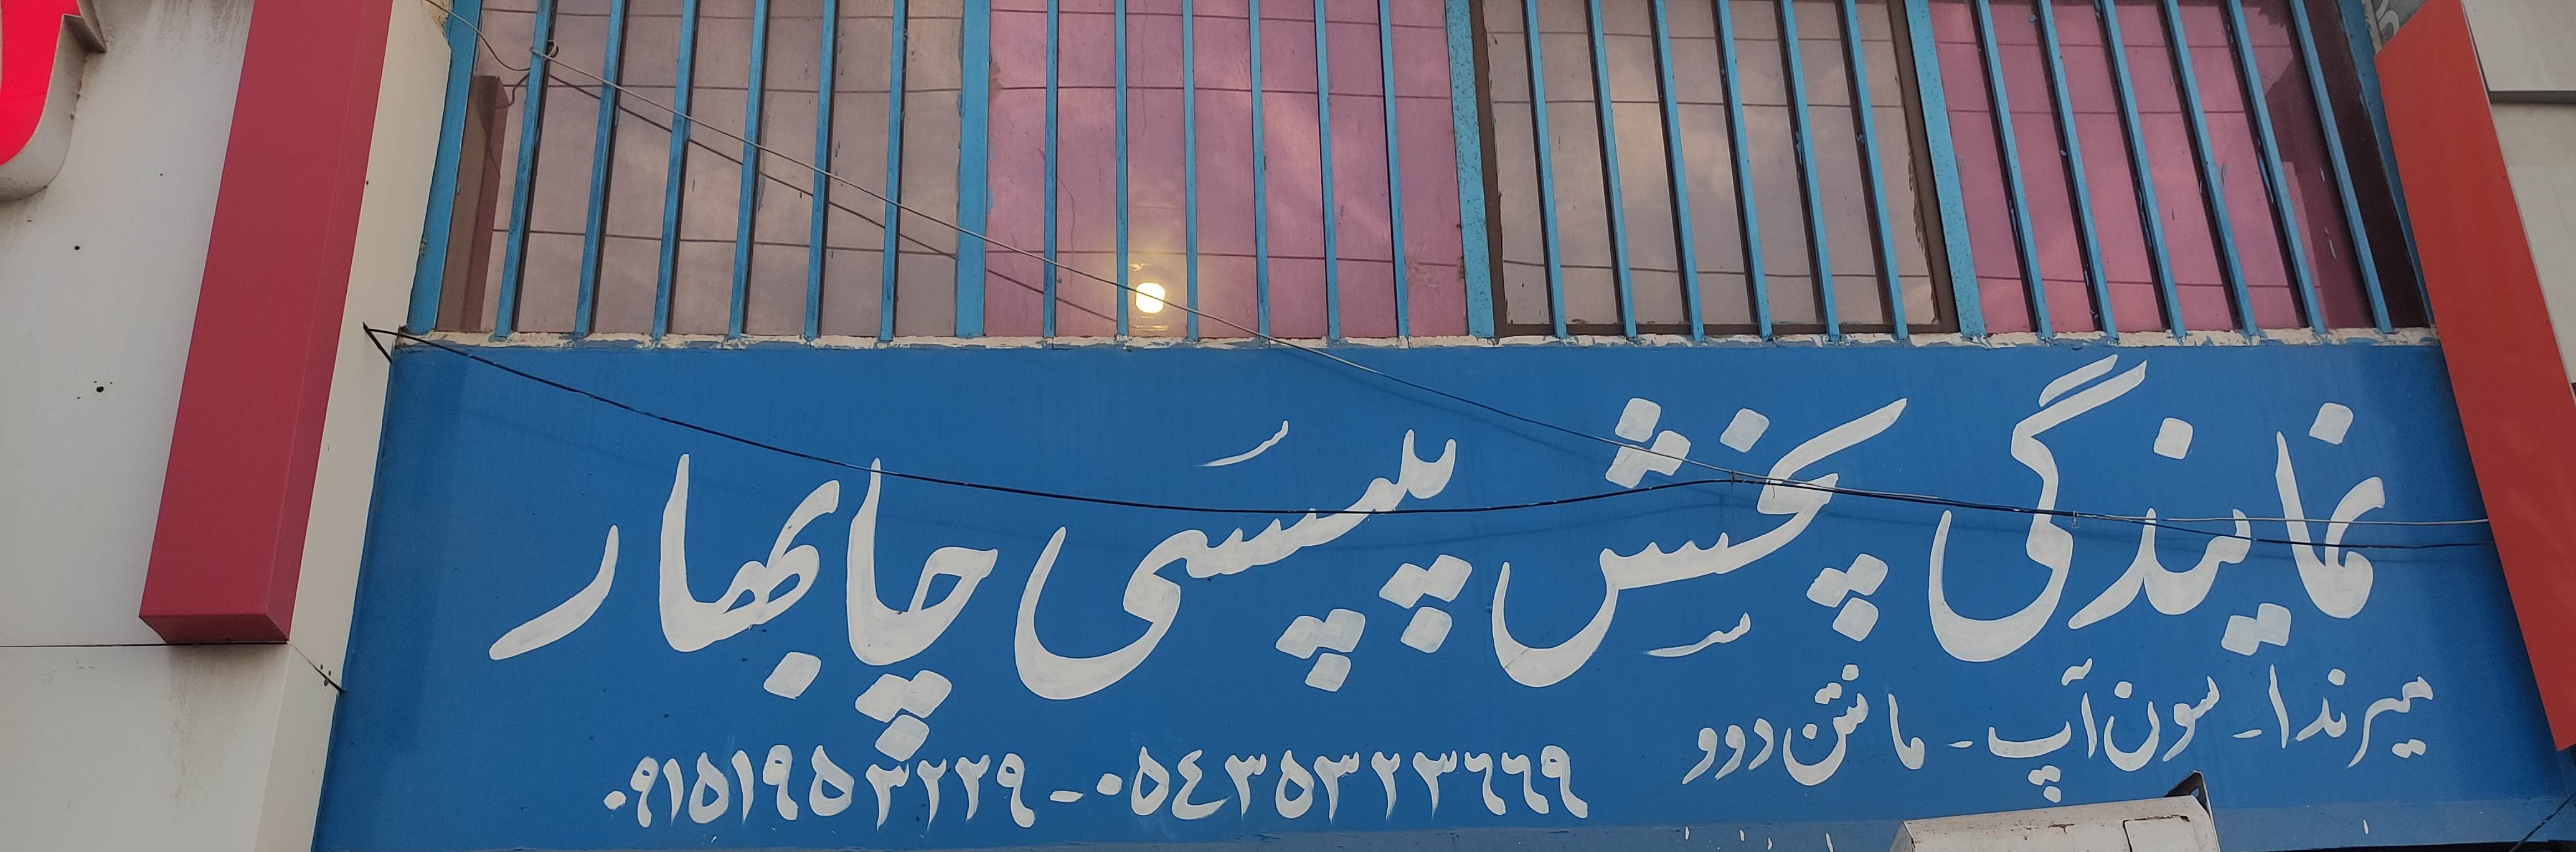 نمایندگی پخش پپسی چابهار
میرندا - سون آپ - مانتن دوو
۰۵۴۳۵۳۲۳۶۶۹ - ۰۹۱۵۱۹۵۳۲۲۹